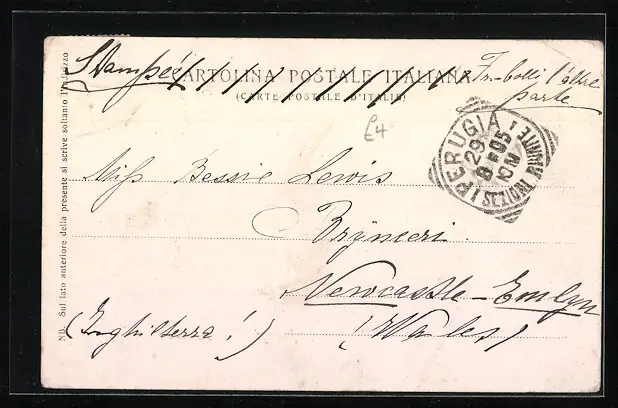 Stampe
CARTOLINA POSTALE ITALIANA
(CARTE POSTALE D'ITALIE)
Fr-bolli l'altre
parte
£4
PERUGIA
29
8 05
10 M
Miss Bessie Lewis
Brynceri.
Newcastle-Emlyn
(Inghilterra!)
(Wales)
NB. Sul lato anteriore della presente si scrive soltanto l'indirizzo